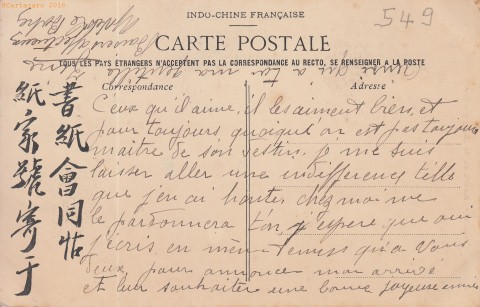 ©Cartajaro 2016
INDO-CHINE FRANÇAISE
549
CARTE POSTALE
TOUS LES PAYS ÉTRANGERS N'ACCEPTENT PAS LA CORRESPONDANCE AU RECTO, SE RENSEIGNER A LA POSTE
Correspondance
Adresse
Ceux qu'il aime, il les aiment bien, et
pour toujours quoique on est pas toujours
maitre de son destin. je me suis
laisser aller une indifference telle
que j'en ai honte, chez moi me
le pardonnera t'on, j'espere, que oui
j'ecris en même temps qu'a vous
deux, pour annonce mon arrivé
et leur souhaiter une bonne joyeuse année
書紙會同帖
紙家號寄于